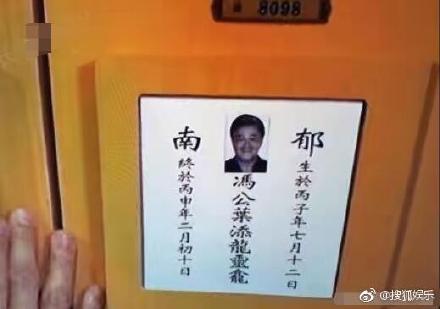 8098
郁南
生於丙子年七月十二日
馮公葉添龍靈龕
終於丙申年二月初十日
@搜狐娱乐